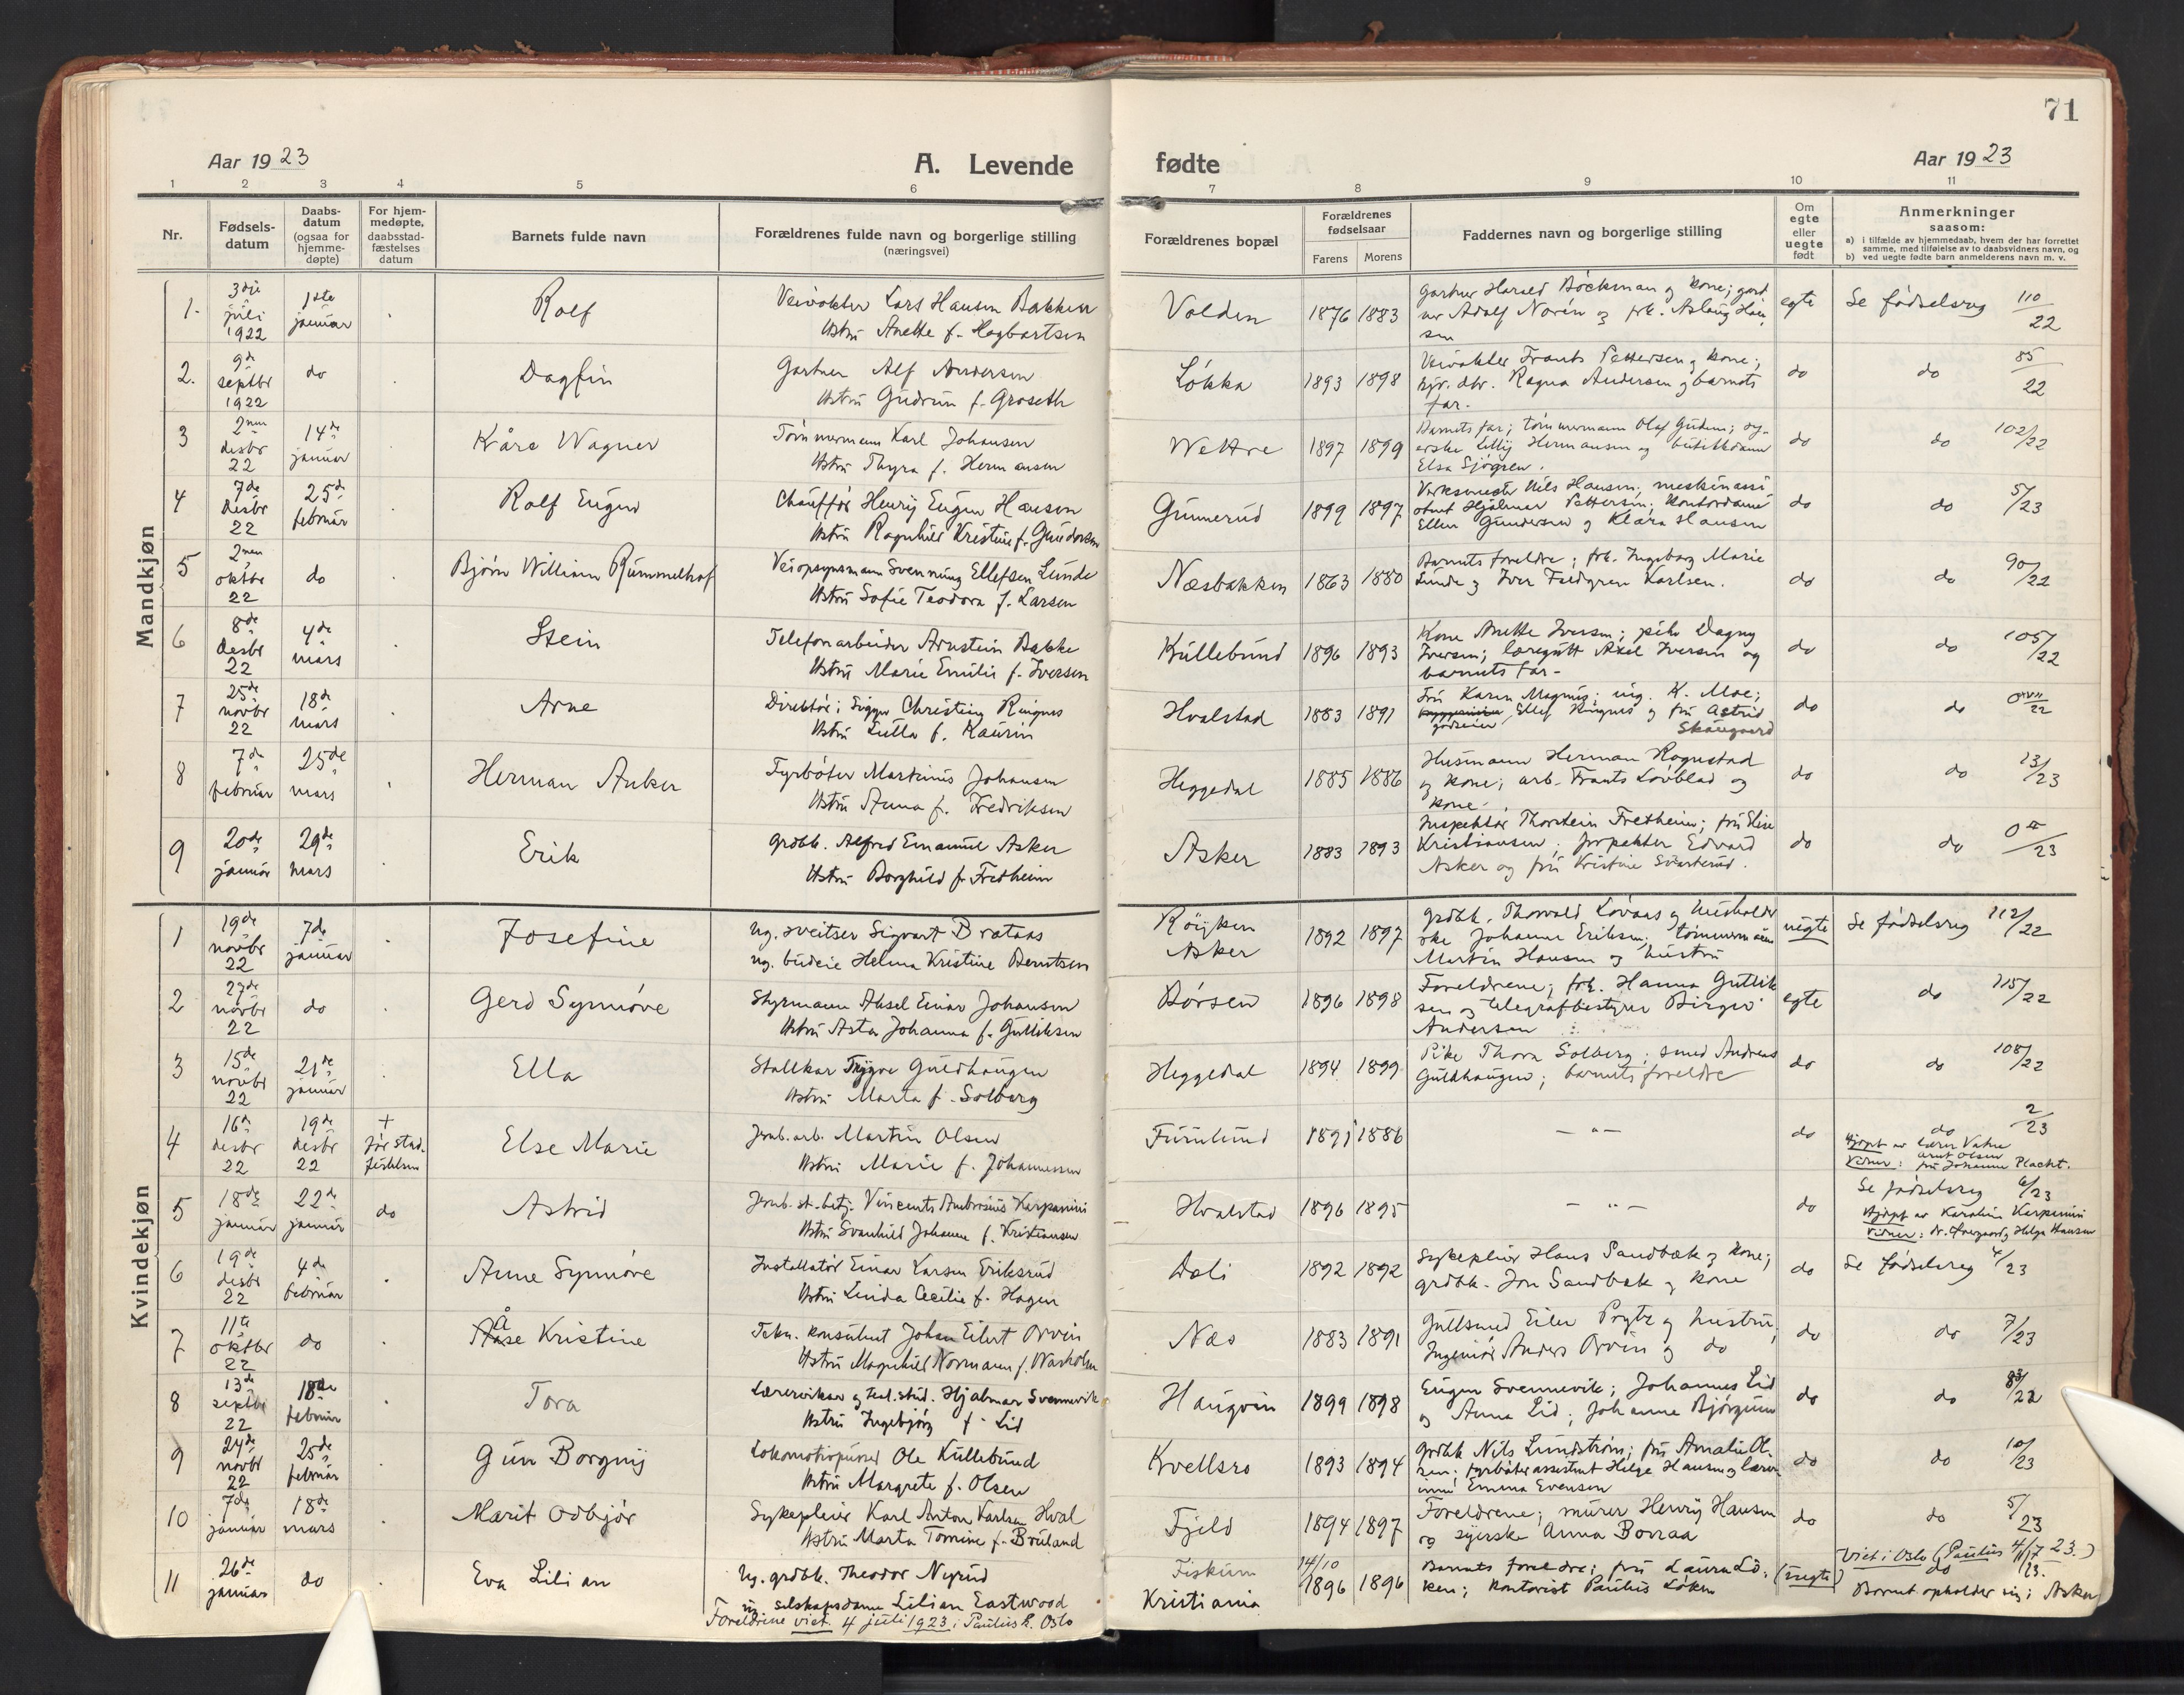 71
Aar 1923 A. Levende fødte Aar 1923
1 2 3 4 5 6 7 8 9 10 11
Nr.
Fødsels-
datum
Daabs-
datum
(ogsaa for
hjemme-
døpte)
For hjem-
medøpte,
daabsstad-
fæstelses
datum
Barnets fulde navn
Forældrenes fulde navn og borgerlige stilling
(næringsvei)
Forældrenes bopæl
Forældrenes
fødselsaar
Farens Morens
Faddernes navn og borgerlige stilling
Om
egte
eller
uegte
født
Anmerkninger
saasom:
a) i tilfælde av hjemmedaab, hvem der har forrettet
samme, med tilføielse av to daabsvidners navn, og
b) ved uegte fødte barn anmelderens navn m. v.
Mandkjøn
1. 3dje juli 1922 1ste januar Rolf Veivokter Lars Hansen Bakken
Hstru Anette f. Hagbartsen
Volden 1876 1883 Gartner Harald Böckman og kone; gard
ner Adolf Norén og frk. Aslaug Han
sen
egte Se fødselsreg 110/22
2. 9de septbr 1922 do Dagfin Gartner Alf Andersen
Hstru Gudrun f. Groseth
Løkka 1893 1898 Veivokter Frants Pettersen og kone;
Ragna Andersen og barnets
far.
do do 85/22
3 2nen desbr 22 14de januar Kåre Wagner Tømmermann Karl Johansen
Hstru Thyra f. Hermansen
Wettre 1897 1899 Barnets far; tømmermann Olaf Gudem; sy-
erske Lilly Hermansen og butikkdame
Elsa Sjøgren.
do do 102/22
4 7de desbr 22 25de februar Rolf Eugen Chauffør Henry Eugen Hansen
Hstru Ragnhild Kristine f. Gundersen
Gunnerud 1899 1897 Verksmester Nils Hansen; maskinassi
stent Hjalmar Pettersen; kontordame
Ellen Gundersen og Klara Hansen
do do 5/23
5 2nen oktbr 22 do Bjørn William Rummelhof Veiopsynsmann Svenning Ellefsen Lunde
Hstru Sofie Teodora f. Larsen
Næsbakken 1863 1880 Barnets foreldre; frk. Ingeborg Marie
Lunde og Iver Fredgren Karlsen.
do do 90/22
6 8de desbr 22 4de mars Stein Telefonarbeider Arnstein Bakke
Hstru Marie Emilie f. Iversen
Kullebund 1896 1893 Kone Anette Iversen; pike Dagny
Iversen; læregutt Axel Iversen og
barnets far-
do do 105/22
7 25de novbr 22 18de mars Arne Direktør Christian Ringnes
Hstru Lulla f. Kaurin
Hvalstad 1883 1891 Fru Karen Magnus; ing. K. Moe;
godseier Ellef Ringnes og fru Astrid
Skaugaard
do do
8 7de februar 25de mars Herman Anker Fyrbøter Martinius Johansen
Hstru Anna f. Fredriksen
Heggedal 1885 1886 Husmann Herman Rognstad
og kone; arb. Frants Løvblad og
kone.
do do 13/23
9 20de januar 29de mars Erik grdbk. Alfred Emanuel Asker
Hstru Borghild f. Fretheim
Asker 1883 1893 Inspektør Thorstein Fretheim; fru Elise
Kristiansen; forpakter Edvard
Asker og fru Kristine Svarterud.
do do
Kvindekjøn
1 19de novbr 22 7de januar Josefine Ug. sveitser Sigvart Brataas
ug. budeie Helma Kristine Berntsen
Røyken
Asker
1892 1897 grdbk. Thorvald Lövaas og husholder
ske Johanne Eriksen; tömmermann
Martin Hansen og hustru
uegte Se fødselsreg 112/22
2 27de novbr 22 do Gerd Synnöve Styrmann Aksel Einar Johansen
Hstru Asta Johanna f. Gulliksen
Børsen 1896 1898 Foreldrene; frk. Hanna Gullik
sen og telegrafbestyrer Birger
Andersen
egte do 115/22
3 15de novbr 22 21de januar Ella Stallkar Trygve Guldhaugen
Hstru Marta f. Solberg
Heggedal 1894 1899 Pike Thora Solberg; smed Andreas
Guldhaugen; barnets foreldre
do do 108/22
4 16de desbr 22 19de desbr 22 + før stad-
festelsen
Else Marie Jernb.arb. Martin Olsen
Hstru Marie f. Johannessen
Furulund 1891 1886 — " — do do 2/23
Hjdpt av lærer Vahre
Vidner: Arnt Olsen
fru Johanne Placht.
5 18de januar 22de januar do Astrid Jernb. st.-betj. Vincents Ambrosius Karpinini
Hstru Svanhild Johanne f. Kristiansen
Hvalstad 1896 1895 — " — do Se fødselsreg 6/23
Hjdpt av Karoline Karpinini
Vidner: Helga Hansen
6 19de desbr 22 4de februar Anne Synnöve Installatör Einar Larsen Eriksrud
Hstru Linda Cecilie f. Hagen
Dæli 1892 1892 Sykepleier Hans Sandbæk og kone;
grdbk. Jon Sandbæk og kone
do Se fødselsreg 4/23
7 11te oktbr 22 do Åse Kristine Tekn. konsulent Johan Eilert Orvin
Hstru Magnhild Normann f. Warholm
Næs 1883 1891 Gullsmed Eiler Prytz og hustru;
Ingeniør Anders Orvin og do
do do 7/23
8 13de septbr 22 18de februar Tora Lærervikar og teol. stud. Hjalmar Svennevik
Hstru Ingebjørg f. Lid
Haugvin 1899 1898 Eugen Svennevik; Johannes Lid
og Anna Lid; Johanne Bjørgum
do do 83/22
9 24de novbr 22 25de februar Gun Borgny Lokomotivpusser Ole Kullebund
Hstru Margrete f. Olsen
Kvellsro 1893 1894 grdbk Nils Lundstrøm; fru Amalie Ol-
sen; fyrbøterassistent Helge Hansen og lærer-
inne Emma Evensen
do do 10/23
10 7de januar 18de mars Marit Odbjør Sykepleier Karl Anton Karlsen Hval
Hstru Marta Tomine f. Bruland
Fjeld 1894 1897 Foreldrene; murer Henry Hansen
og syerske Anna Borraa
do do 5/23
11 26de januar do Eva Lilian Ug. grdbk. Theodor Nyrud
ug selskapsdame Lilian Eastwood
Foreldrene viet 4 juli 1923 i Paulus k. Oslo
Fiskum
Kristiania
14/10
1896 1896 Barnets foreldre; fru Laura Lö-
ken; kontorist Paulus Løken
(uegte) Viet i Oslo (Paulus 4/7 23.)
do
Barnet opholder sig i Asker